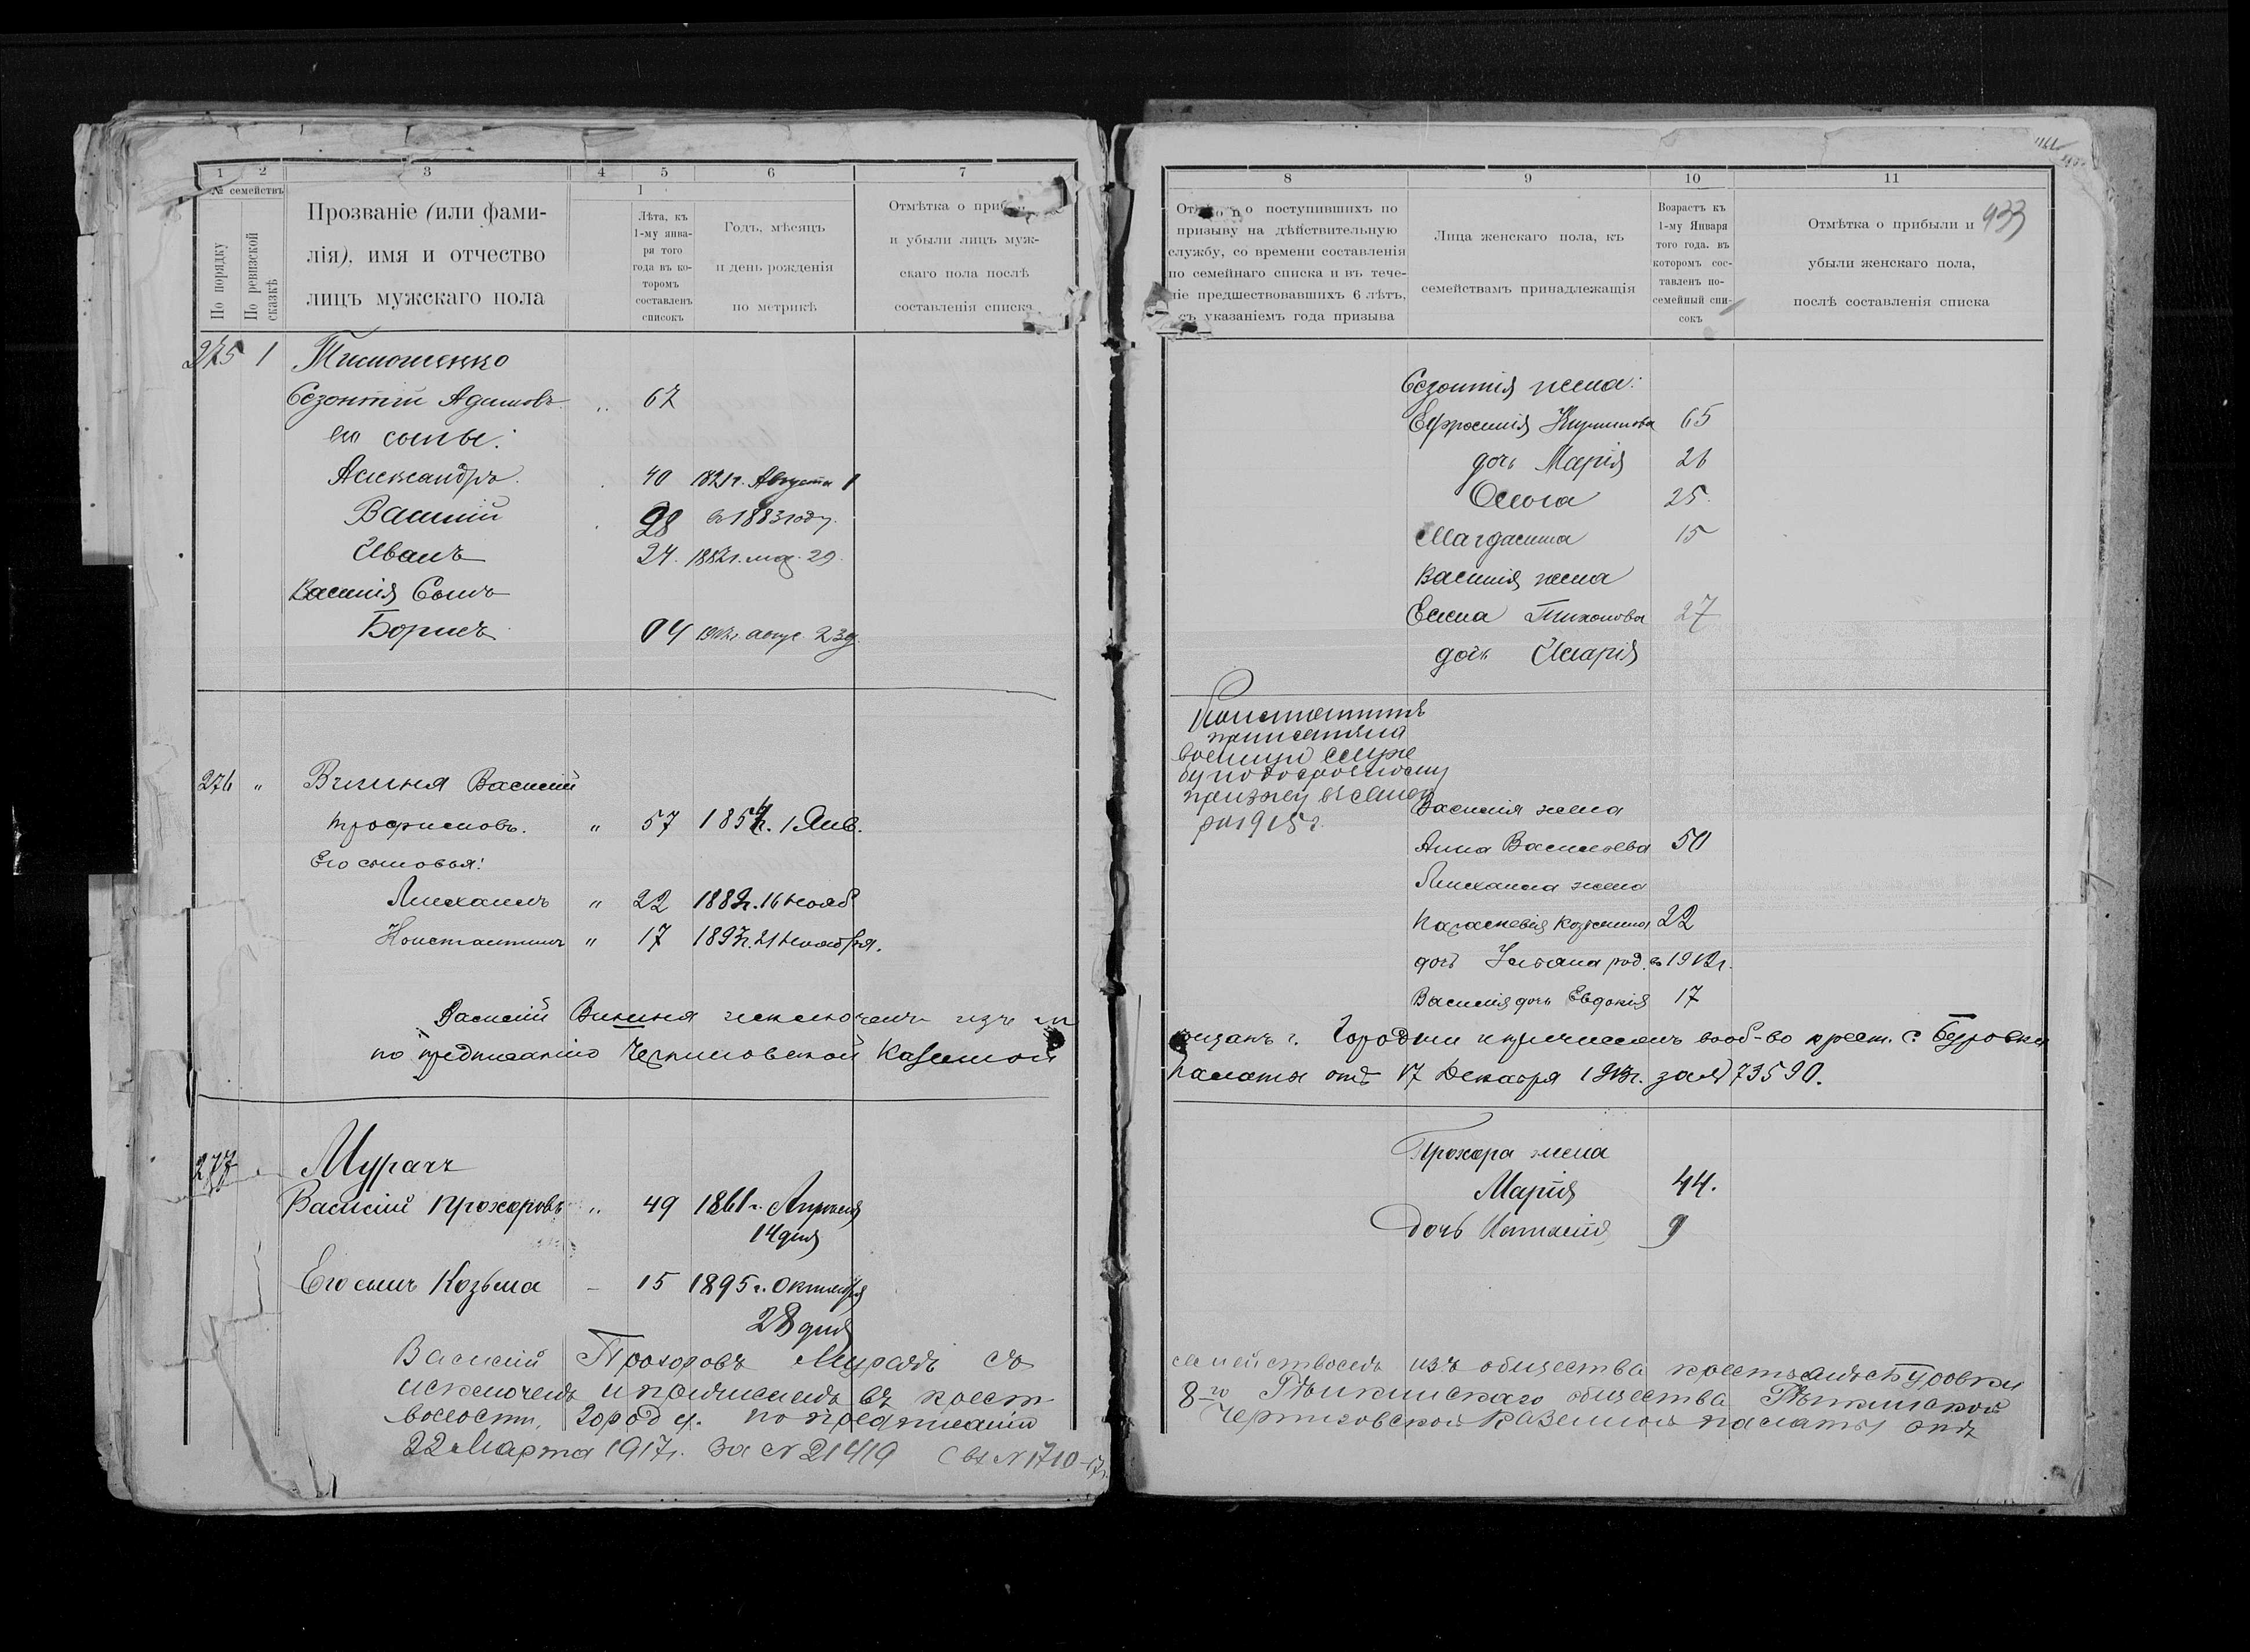 1 2 3 4 5 6 7
№ семействъ
По порядку
По ревизской сказкѣ
Прозваніе (или фами-
лія), имя и отчество
лицъ мужскаго пола
1
Лѣта, къ
1-му янва-
ря того
года въ ко-
торомъ
составленъ
списокъ
Годъ, мѣсяцъ
и день рожденія
по метрикѣ
Отмѣтка о
и убыли лицъ муж-
скаго пола послѣ
составленія списка
275 1 Тимошенко
Адамовъ 67
его сыны:
Александръ 40 Августа 1
Василій 28 въ 1883 году.
Иванъ 24. мая 29.
Василія Сынъ
Борисъ 04 авгус. 23 д.
276 " Вишня Василій
Трофимовъ. " 57 1 Янв.
Его сыновья:
Михаилъ " 22 16 Нояб
Константинъ " 17 21 Ноября.
Василій Вишня исключенъ изъ
по предписанію Черниговской Казенной
277 Мурачъ
Василій Прохоровъ " 49 1861 г. Апреля
14 дня
Его сынъ Козьма – 15 1895 г. Октября
28 дня
Василій Прохоровъ Мурачъ съ
исключенъ и причисленъ въ крест
волости, Город. у. по предписанію
22 Марта 1917 г. за № 21419 Св № 1710-17 г.
8 9 10 11
933
о поступившихъ по
призыву на дѣйствительную
службу, со времени составленія
по семейнаго списка и въ тече-
ніе предшествовавшихъ 6 лѣтъ,
съ указаніемъ года призыва
Лица женскаго пола, къ
семействамъ принадлежащія
Возрастъ къ
1-му Января
того года. въ
которомъ сос-
тавленъ по-
семейный спи-
сокъ
Отмѣтка о прибыли и
убыли женскаго пола,
послѣ составленія списка
жена:
Ефросинія 65
дочь Марія 26
Ольга 25.
Магдалина 15
Василія жена
Елена Тихонова 27
дочь Марія
Константинъ
военную служ
бу по досрочному
призыву въ
1915 г.
Василія жена
Анна Васильева 50
Михаила жена
Параскевія Козьмина 22
дочь Ульяна род. въ 1912 г.
Василія дочь Евдокія 17
мещанъ г. Городни и причисленъ въ об-во крест. с. Буровки
Палаты отъ 17 Декабря за № 73590.
Прохора жена
Марія 44.
Дочь Наталія 9
семействомъ изъ общества крестьянъ с. Буровки
8-го общества
Черниговской Казенной палаты отъ